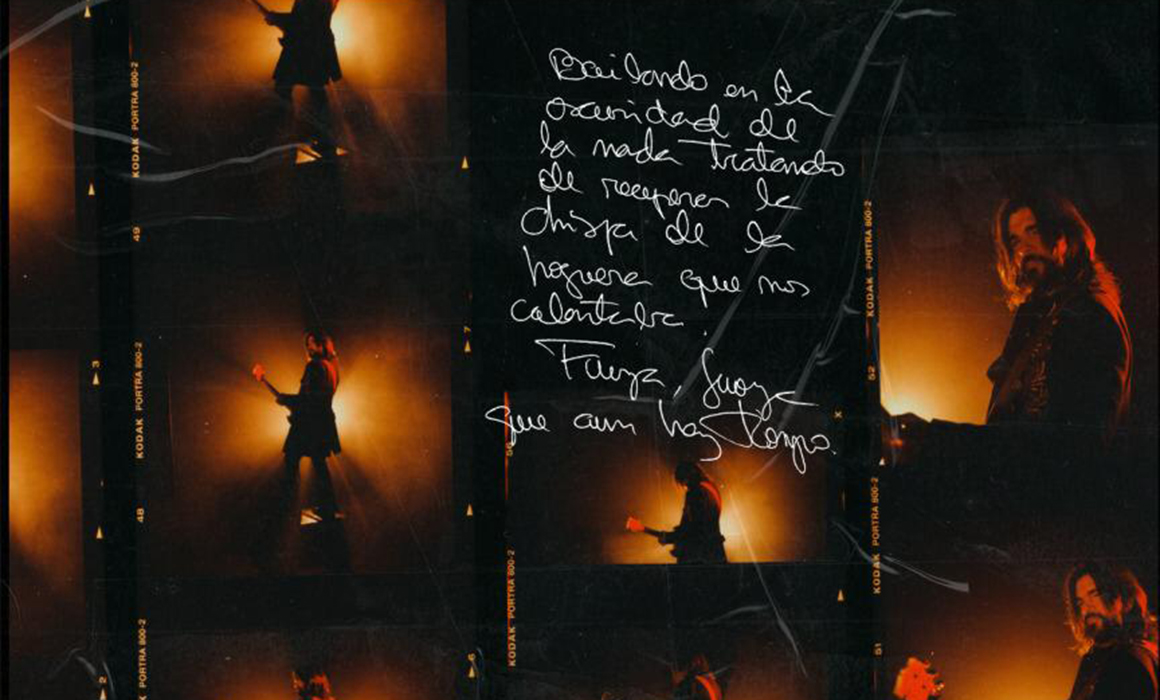 Bailando en la
oscuridad de
la nada tratando
de recuperar la
chispa de la
hoguera que nos
calentaba.
Fuerza, fuerza
que aun hay tiempo.
KODAK PORTRA 800-2
49
KODAK PORTRA 800-2
48
KODAK PORTRA 800-2
3
2
7
6
KODAK PORTRA 800-2
KODAK PORTRA 800-2
52
X
KODAK PORTRA 800-2
51